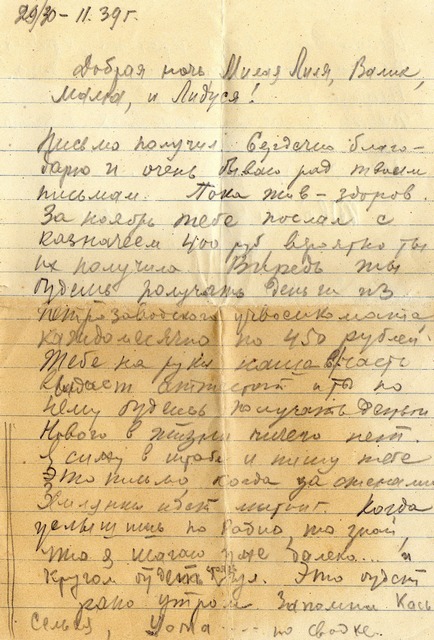 29/30 - 11. 39 г.
Добрая ночь Милая Лиля, Валик,
мама, и Лидуся!
Письмо получил Сердечно благо-
дарю и очень бываю рад твоим
письмам. Пока жив-здоров.
За ноябрь тебе послал с
казначеем 400 руб вероятно ты
их получила Впредь ты
будешь получать деньги из
петрозаводского
каждомесячно по 450 рублей.
Тебе на руки наша часть
аттестат и ты по
нему будешь получать деньги
Нового в жизни ничего нет.
Я сижу в штабе и пишу тебе
это письмо, когда за стенами
идет митинг. Когда
услышишь по радио, то знай
что я шагаю уже далеко....и
кругом будет стоять гул. Это будет
рано утром Запомни